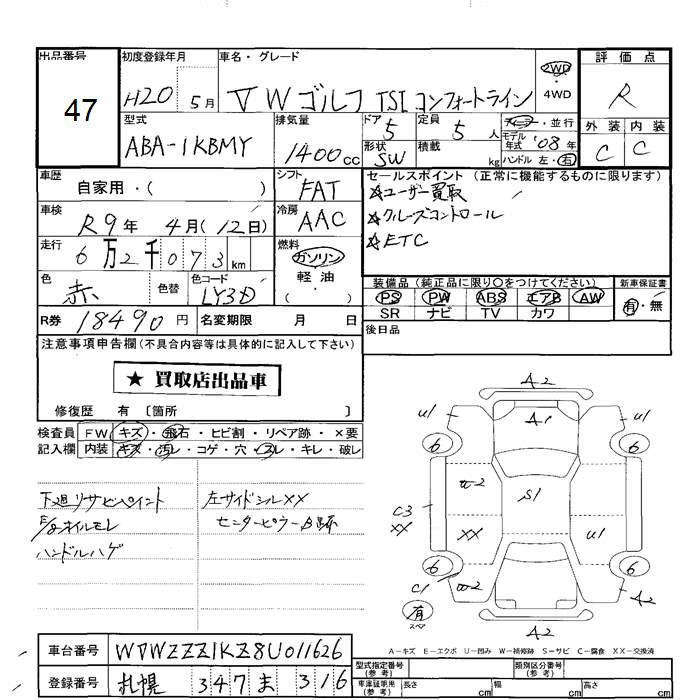 出品番号 47
初度登録年月 H20 5月
車名・グレード VW ゴルフ TSI コンフォートライン
2WD・4WD
評価点 R
外装 C 内装 C
型式 ABA-1KBMY
排気量 1400cc
ドア 5 定員 5人
形状 SW 積載 kg
ディーラー・並行
モデル年式 '08年
ハンドル 左・右
車歴 自家用・( )
シフト FAT
セールスポイント(正常に機能するものに限ります)
☆ユーザー買取
☆クルーズコントロール
☆ETC
車検 R9年 4月(12日)
冷房 AAC
走行 6万2千073km
燃料 ガソリン・軽油・( )
色 赤 色替 色コード LY3D
装備品(純正品に限り○をつけてください) 新車保証書
PS PW ABS エアB AW 有・無
SR ナビ TV カワ
R券 18490円 名変期限 月 日
後日品
注意事項申告欄(不具合内容等は具体的に記入して下さい)
★ 買取店出品車
修復歴 有〔箇所 〕
検査員記入欄 FW キズ・飛石・ヒビ割・リペア跡・×要
内装 キズ・汚レ・コゲ・穴・スレ・キレ・破レ
下廻リサビペイント
E/gオイルモレ
ハンドルハゲ
左サイドシルXX
センターピラー
A2
U1 A1 U1
6 6
W2 S1
C3 XX XX U1
6 6
C1 W2 A2
有 スペア
A2
A-キズ E-エクボ U-凹み W-補修跡 S-サビ C-腐食 XX-交換済
車台番号 WVWZZZ1KZ8U011626
登録番号 札幌 347 ま 316
型式指定番号(参考) 類別区分番号(参考)
車庫証明用(参考) 長さ cm 幅 cm 高さ cm